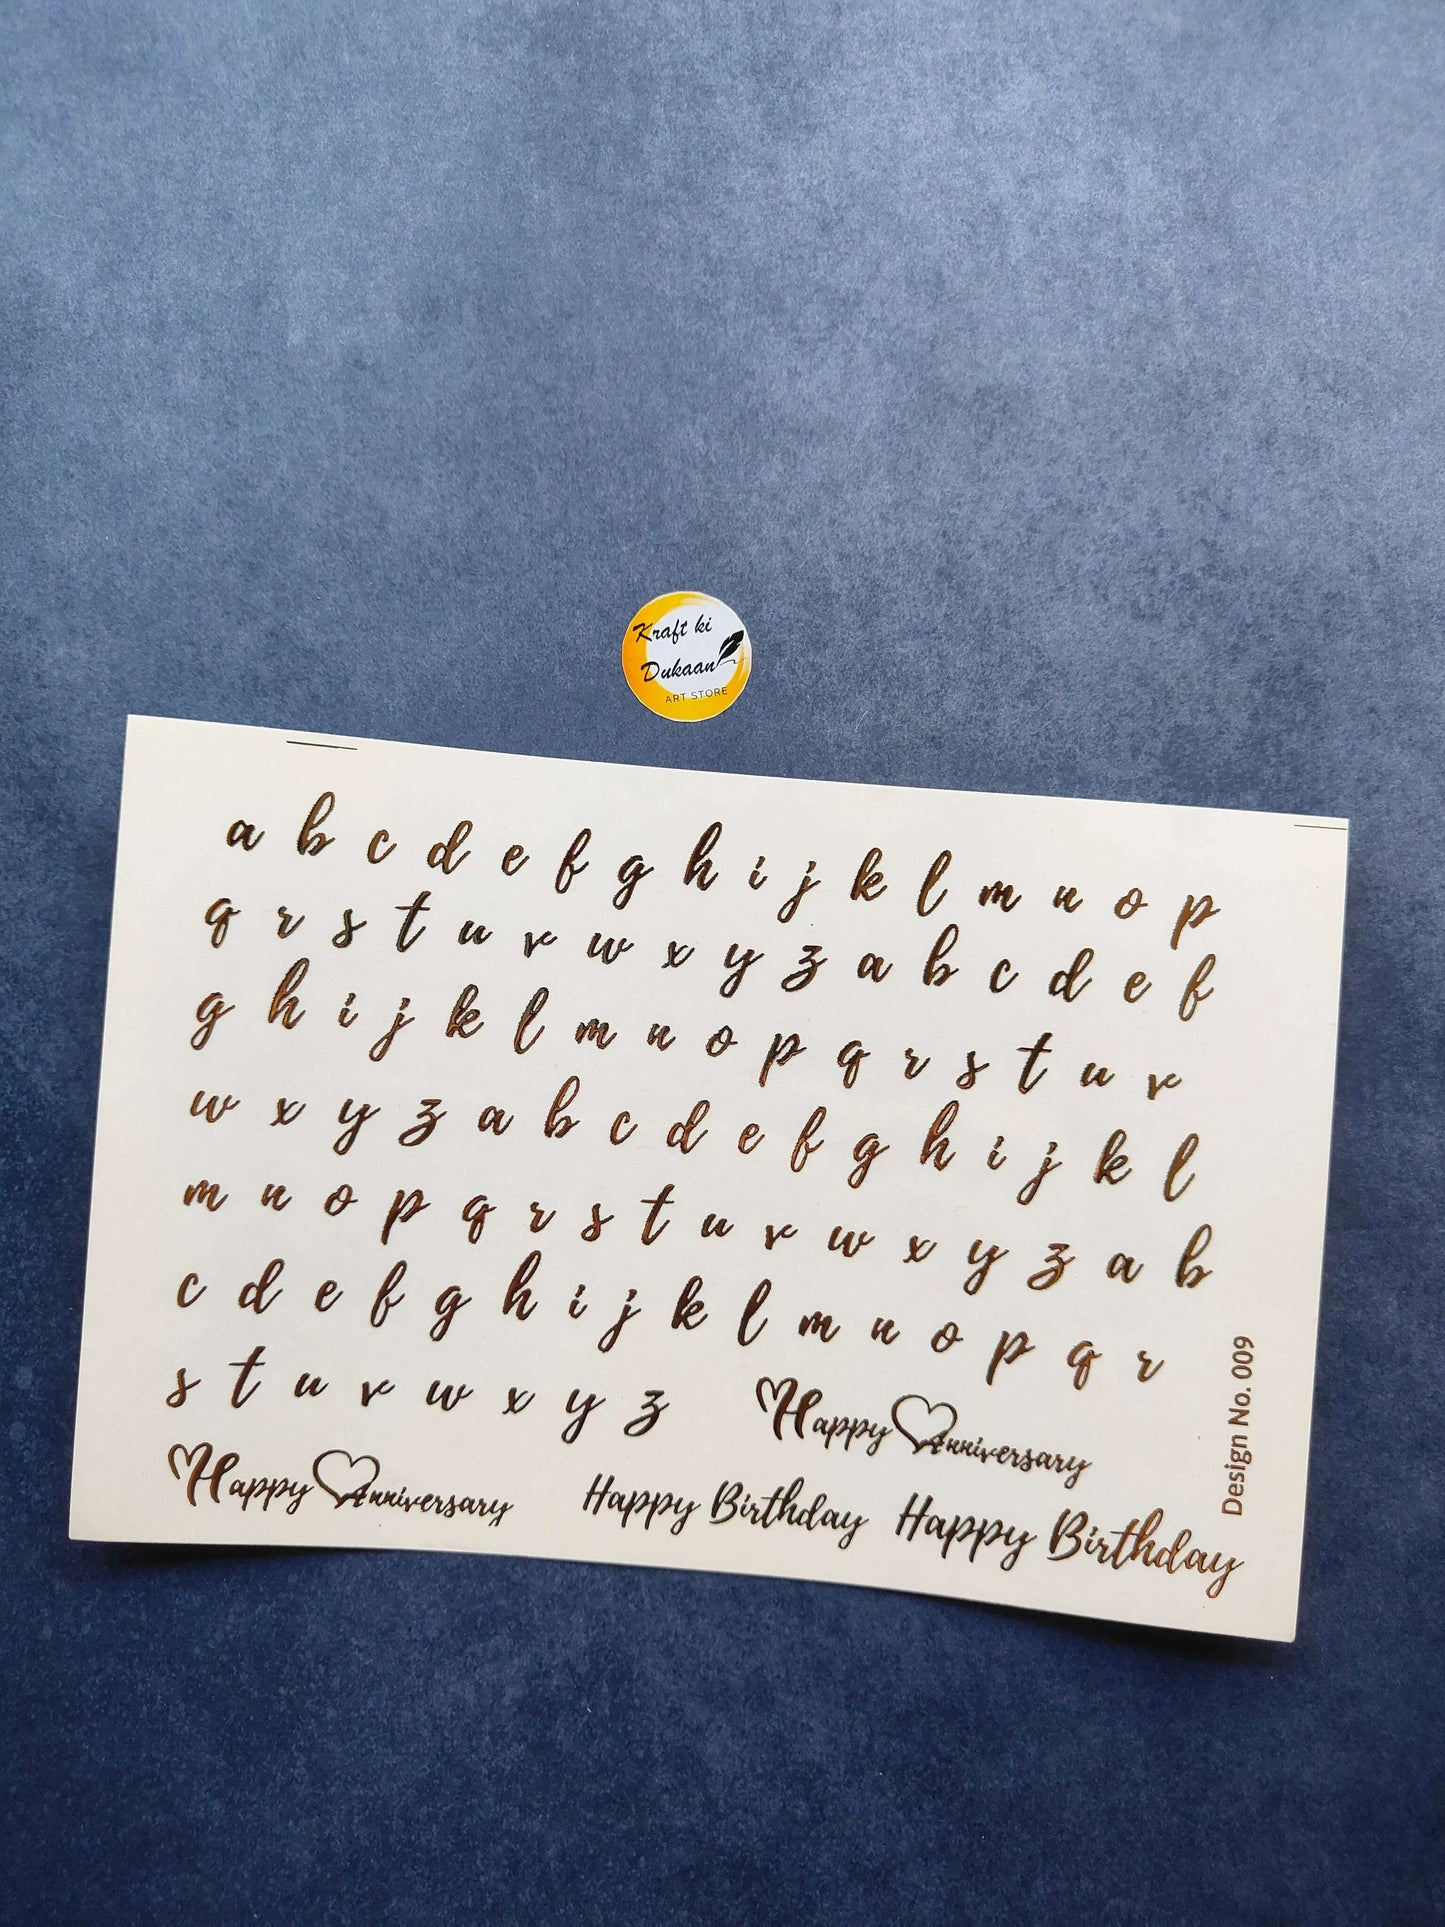 Kraft ki
Dukaan
ART STORE
a b c d e f g h i j k l m n o p
q r s t u v w x y z a b c d e f
g h i j k l m n o p q r s t u v
w x y z a b c d e f g h i j k l
m n o p q r s t u v w x y z a b
c d e f g h i j k l m n o p q r
s t u v w x y z Happy Anniversary
Happy Anniversary Happy Birthday Happy Birthday
Design No. 009